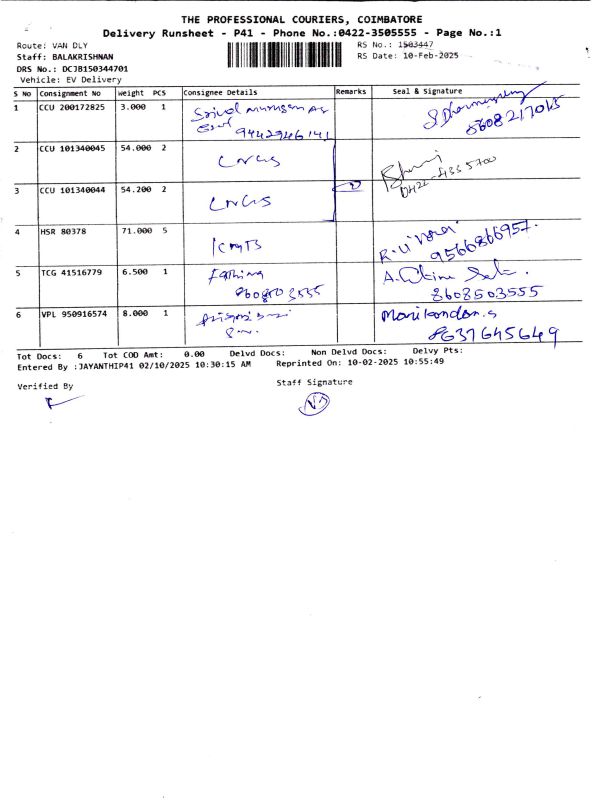 THE PROFESSIONAL COURIERS, COIMBATORE
Delivery Runsheet - P41 - Phone No.:0422-3505555 - Page No.:1
Route: VAN DLY RS No.: 1503447
Staff: BALAKRISHNAN RS Date: 10-Feb-2025
DRS No.: DCJB150344701
Vehicle: EV Delivery
S No Consignment No weight PCS Consignee Details Remarks Seal & Signature
1 CCU 200172825 3.000 1
9442946141 8608217015
2 CCU 101340045 54.000 2
0422-4355700
3 CCU 101340044 54.200 2
4 HSR 80378 71.000 5
9566866957.
5 TCG 41516779 6.500 1 Fathima
8608503555 8608503555
6 VPL 950916574 8.000 1 Manikandan.s
8637645649
Tot Docs: 6 Tot COD Amt: 0.00 Delvd Docs: Non Delvd Docs: Delvy Pts:
Entered By :JAYANTHIP41 02/10/2025 10:30:15 AM Reprinted On: 10-02-2025 10:55:49
Verified By Staff Signature